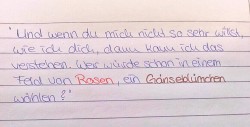 "Und wenn du mich nicht so sehr willst,
wie ich dich, dann kann ich das
verstehen. Wer würde schon in einem
Feld von Rosen, ein Gänseblümchen
wählen?"